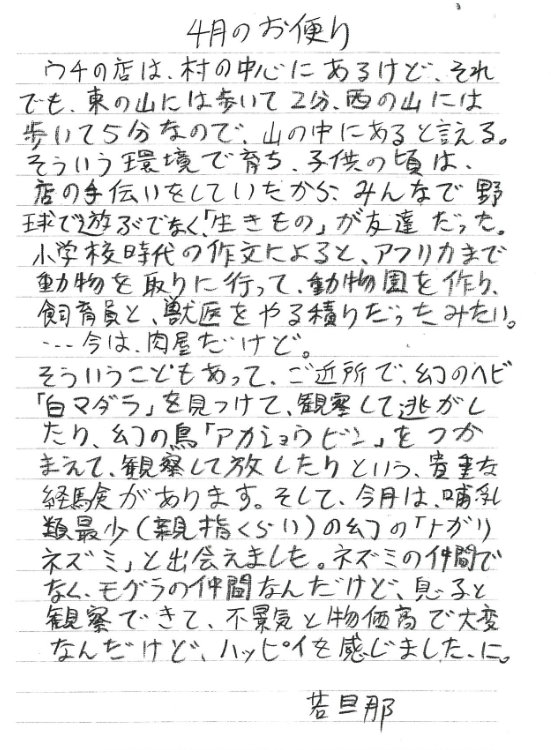 4月のお便り
ウチの店は、村の中心にあるけど、それ
でも、東の山には歩いて2分、西の山には
歩いて5分なので、山の中にあると言える。
そういう環境で育ち、子供の頃は、
店の手伝いをしていたから、みんなで野
球で遊ぶでなく、「生きもの」が友達だった。
小学校時代の作文によると、アフリカまで
動物を取りに行って、動物園を作り、
飼育員と、獣医をやる積りだったみたい。
…今は、肉屋だけど。
そういうこともあって、ご近所で、幻のヘビ
「白マダラ」を見つけて、観察して逃がし
たり、幻の鳥「アカショウビン」をつか
まえて、観察して放したりという、貴重な
経験があります。そして、今月は、哺乳
類最少(親指くらい)の幻の「トガリ
ネズミ」と出会えました。ネズミの仲間で
なく、モグラの仲間なんだけど、息子と
観察できて、不景気と物価高で大変
なんだけど、ハッピイを感じました、に。
若旦那